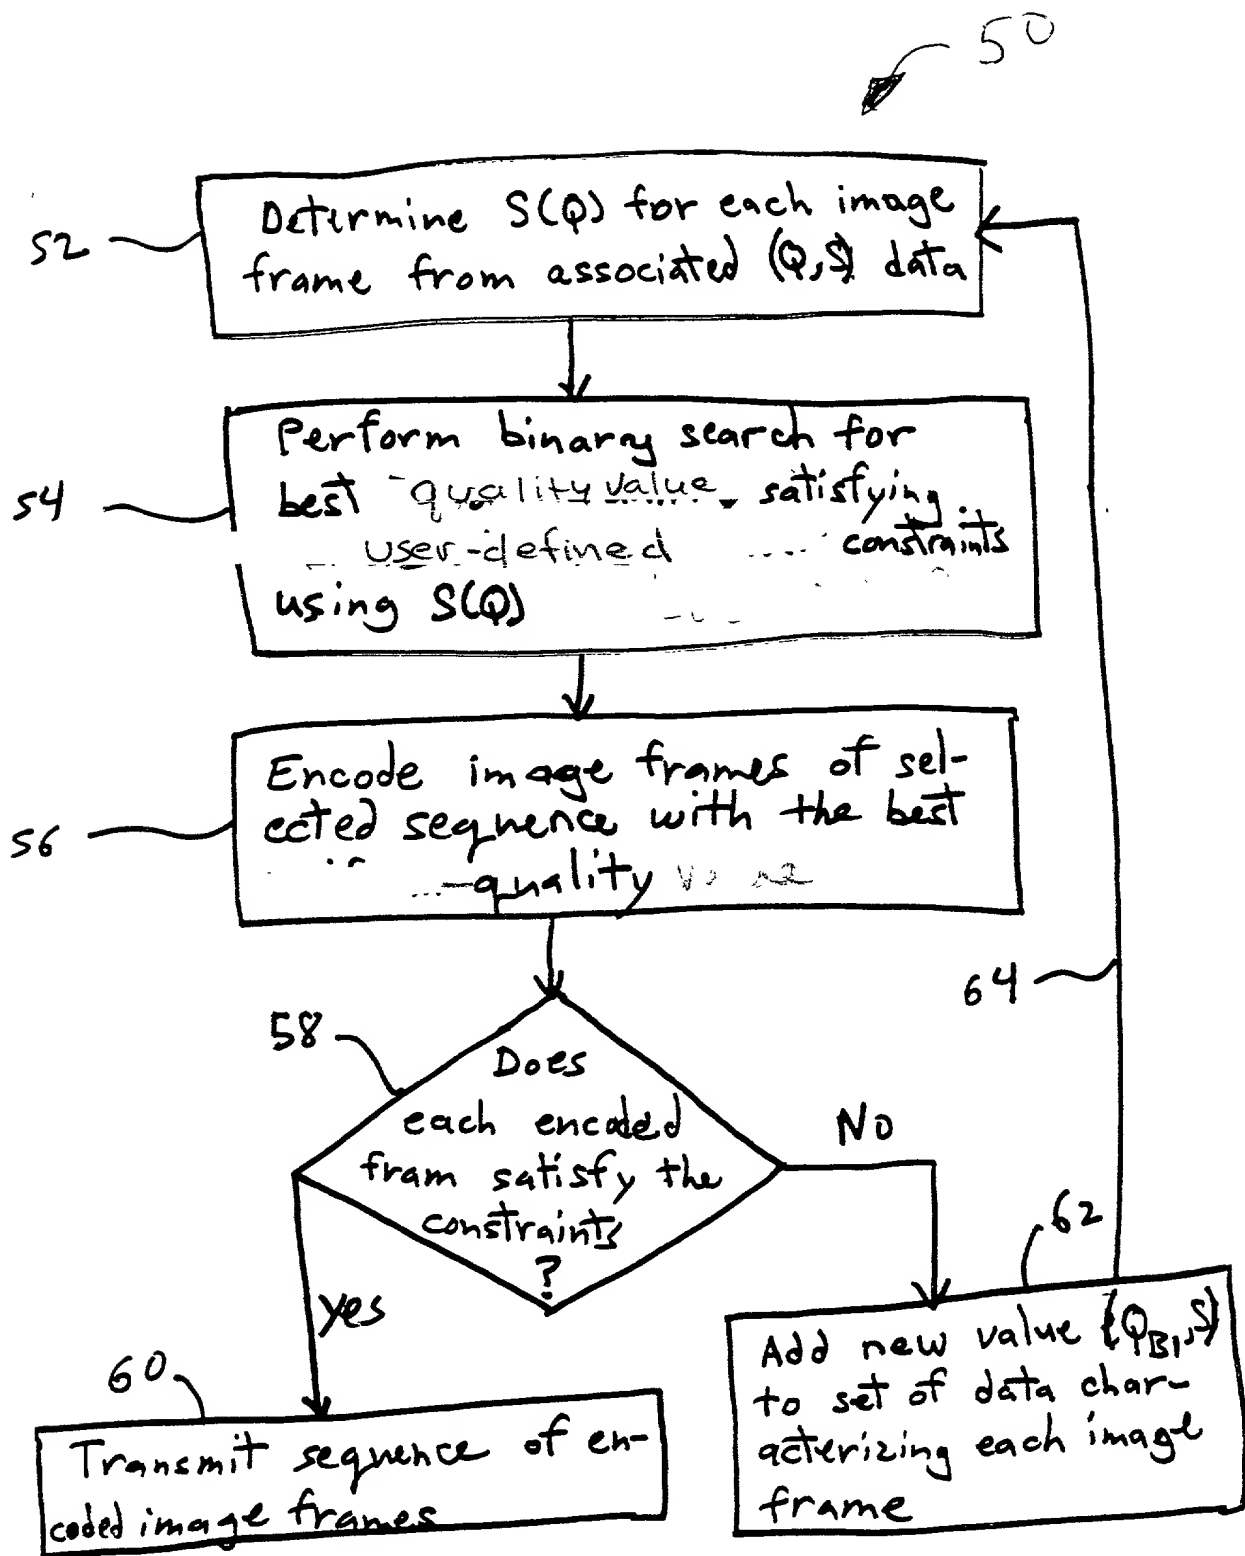 50
52
Determine S(Q) for each image
frame from associated (Q,S) data
54
Perform binary search for
best quality value satisfying
user-defined constraints
using S(Q)
56
Encode image frames of sel-
ected sequence with the best
quality
58
Does
each encoded
fram satisfy the
constraints
?
No
64
yes
62
60
Transmit sequence of en-
coded image frames
Add new value (Q_B1,S)
to set of data char-
acterizing each image
frame